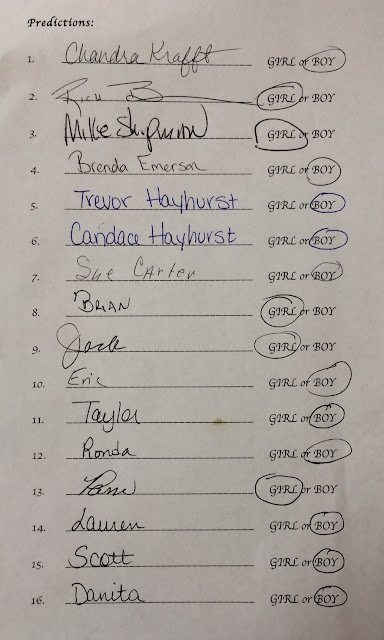 Predictions:
1. Chandra Krafft GIRL or BOY
2. Rich B GIRL or BOY
3. Mike Shipman GIRL or BOY
4. Brenda Emerson GIRL or BOY
5. Trevor Hayhurst GIRL or BOY
6. Candace Hayhurst GIRL or BOY
7. Sue Carter GIRL or BOY
8. BRIAN GIRL or BOY
9. Jack GIRL or BOY
10. Eric GIRL or BOY
11. Taylor GIRL or BOY
12. Ronda GIRL or BOY
13. Pam GIRL or BOY
14. Lauren GIRL or BOY
15. Scott GIRL or BOY
16. Danita GIRL or BOY